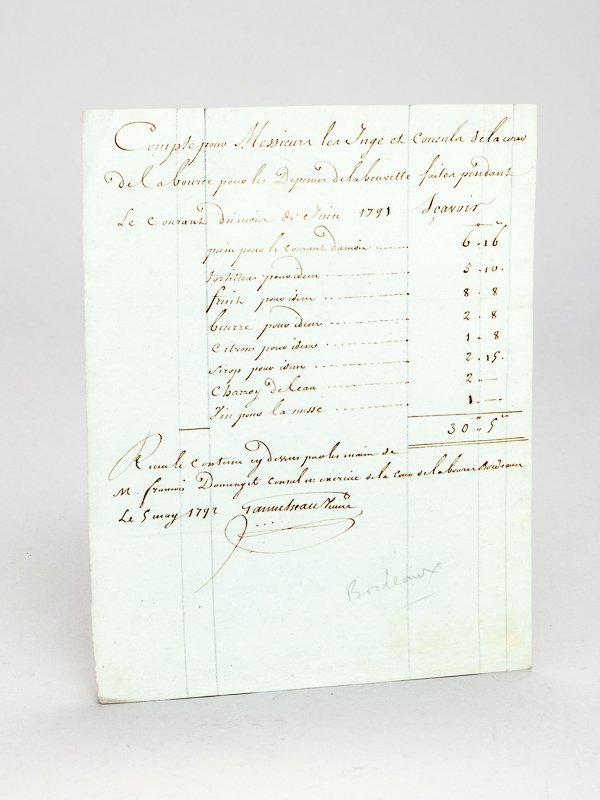 Compte pour Messieurs les Juge et Consuls de la cour
de la bource pour les Depences de la beuvette faites pendant
Le Courant du mois de Juin 1791 Sçavoir
pain pour le courant du mois ........ 6 " 16
tortillons pour idem ........ 5 . 10 .
fruit pour idem ........ 8 . 8
beurre pour idem ........ 2 . 8
Citrons pour idem ........ 1 . 8
Sirop pour idem ........ 2 . 15 .
Charroy de leau ........ 2 . —
Vin pour la messe ........ 1 . — .
30 " 5 "
Reçu le Contenu cy dessus par les main de
M. françois Domenget Consul en exercice de la Cour de la bource Bordeaux
Le 5 may 1792
Bordeaux